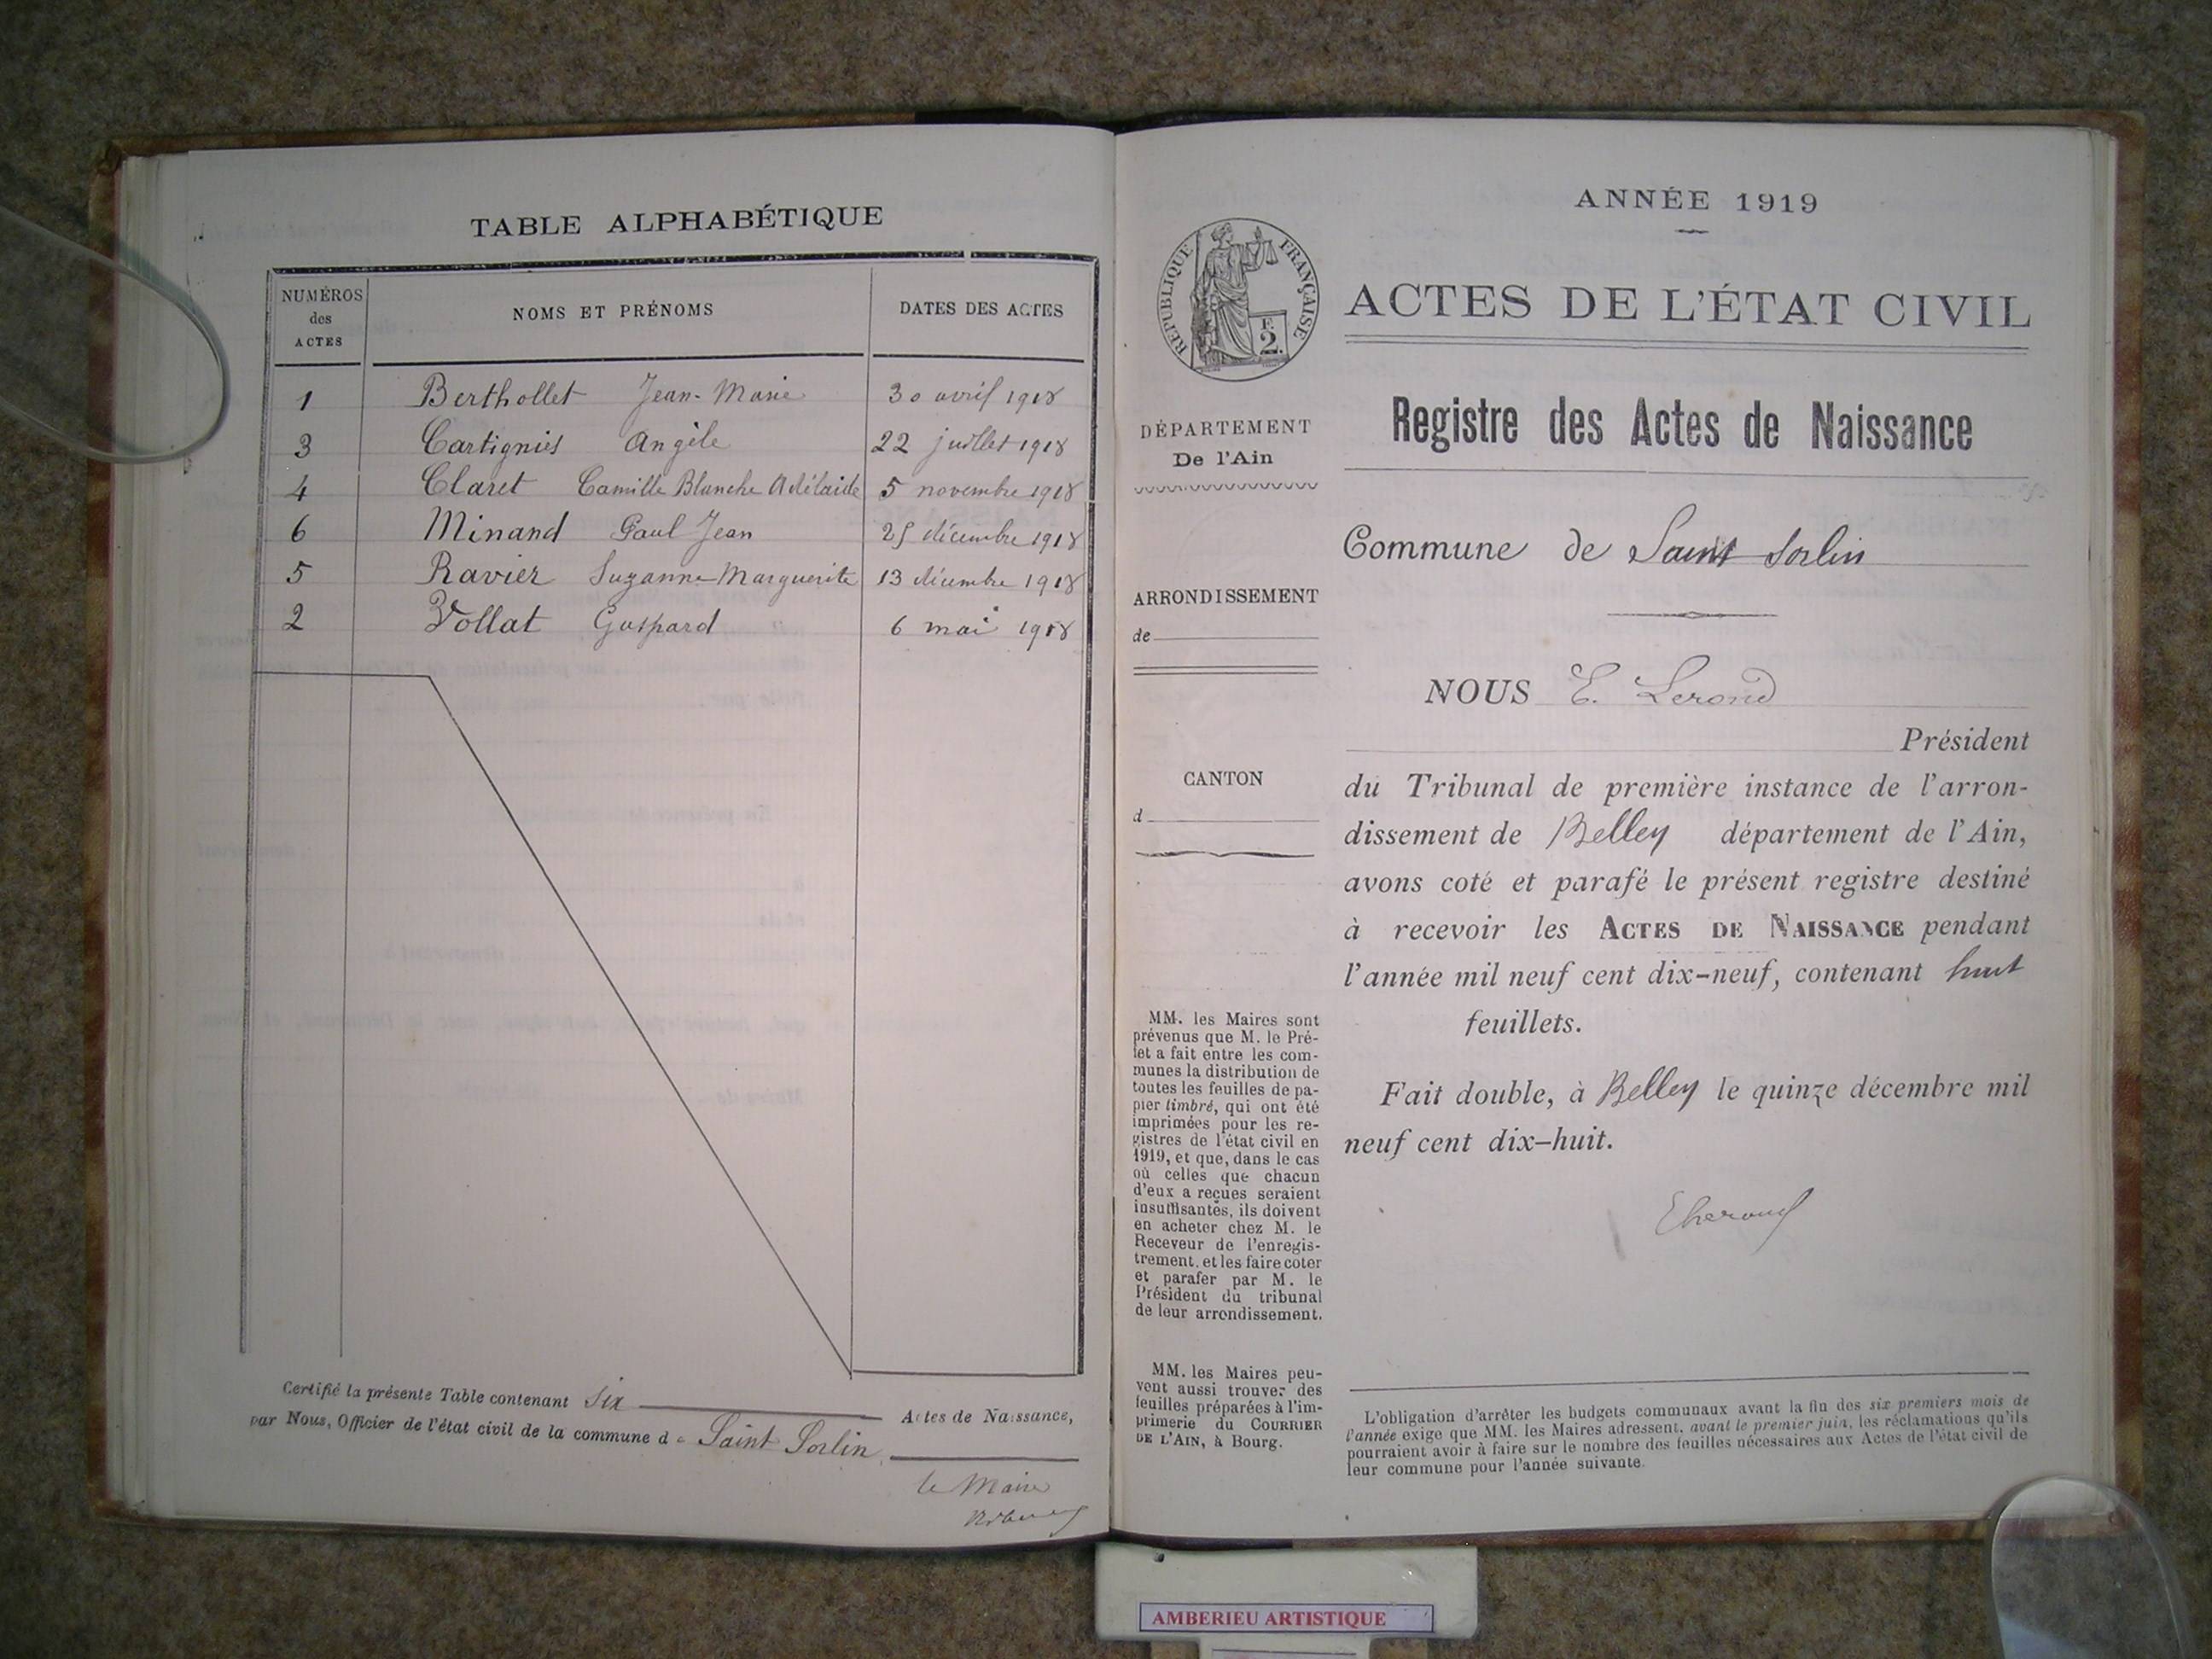 TABLE ALPHABÉTIQUE
NUMÉROS
des
ACTES
NOMS ET PRÉNOMS
DATES DES ACTES
1 Berthollet Jean-Marie 30 avril 1918
3 Cartignies Angèle 22 juillet 1918
4 Claret Camille Blanche Adélaide 5 novembre 1918
6 Minand Paul Jean 25 décembre 1918
5 Ravier Suzanne Marguerite 13 décembre 1918
2 Vollat Gaspard 6 mai 1918
Certifié la présente Table contenant six Actes de Naissance,
par Nous, Officier de l'état civil de la commune de Saint Sorlin
le Maire
ANNÉE 1919
RÉPUBLIQUE FRANÇAISE
2
F.
ACTES DE L'ÉTAT CIVIL
DÉPARTEMENT
De l'Ain
Registre des Actes de Naissance
Commune de Saint Sorlin
ARRONDISSEMENT
de
NOUS E. Lerond
Président
CANTON
d
du Tribunal de première instance de l'arron-
dissement de Belley département de l'Ain,
avons coté et parafé le présent registre destiné
à recevoir les ACTES DE NAISSANCE pendant
l'année mil neuf cent dix-neuf, contenant huit
feuillets.
Fait double, à Belley le quinze décembre mil
neuf cent dix-huit.
MM. les Maires sont
prévenus que M. le Pré-
fet a fait entre les com-
munes la distribution de
toutes les feuilles de pa-
pier timbré, qui ont été
imprimées pour les re-
gistres de l'état civil en
1919, et que, dans le cas
où celles que chacun
d'eux a reçues seraient
insuffisantes, ils doivent
en acheter chez M. le
Receveur de l'enregis-
trement, et les faire coter
et parafer par M. le
Président du tribunal
de leur arrondissement.
MM. les Maires peu-
vent aussi trouver des
feuilles préparées à l'im-
primerie du COURRIER
DE L'AIN, à Bourg.
L'obligation d'arrêter les budgets communaux avant la fin des six premiers mois de
l'année exige que MM. les Maires adressent, avant le premier juin, les réclamations qu'ils
pourraient avoir à faire sur le nombre des feuilles nécessaires aux Actes de l'état civil de
leur commune pour l'année suivante.
AMBERIEU ARTISTIQUE